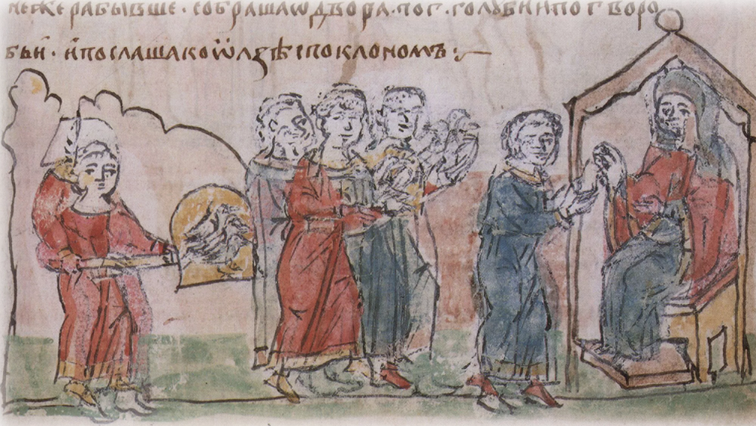 не же ра бывше · собраша ѿ двора · по г · голоби и по г воро
бьи · и послаша ко ѡлзѣ с поклономъ :